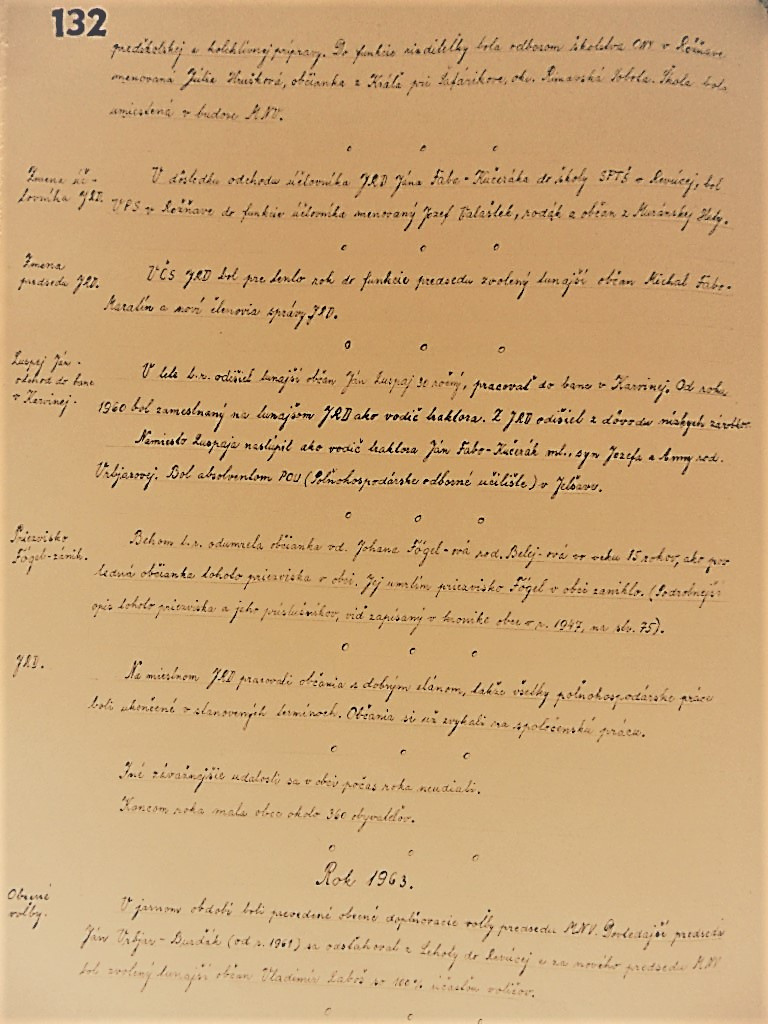 132
predškolskej a kolektívnej prípravy. Do funkcie riaditeľky bola odborom školstva ONV v Rožňave
menovaná Júlia Hrušková, občianka z Kráľa pri Šafárikove, okr. Rimavská Sobota. Škola bola
umiestená v budove MNV.
Zmena úč-
tovníka JRD.
V dôsledku odchodu účtovníka JRD Jána Fabo-Kučeráka do školy SPTŠ v Revúcej, bol
VPS v Rožňave do funkcie účtovníka menovaný Jozef Valaštek, rodák a občan z Muránskej Huty.
Zmena
predsedu JRD.
VČS JRD bol pre tento rok do funkcie predsedu zvolený tunajší občan Michal Fabo-
Maratín a noví členovia správy JRD.
Luspaj Ján-
odchod do bane
v Karvinej.
V lete t.r. odišiel tunajší občan Ján Luspaj 30 ročný, pracovať do bane v Karvinej. Od roku
1960 bol zamestnaný na tunajšom JRD ako vodič traktora. Z JRD odišiel z dôvodu nízkych zárobkov.
Namiesto Luspaja nastúpil ako vodič traktora Ján Fabo-Kučerák ml., syn Jozefa a Anny rod.
Vrbjarovej. Bol absolventom POU (Poľnohospodárske odborné učilište) v Jelšave.
Priezvisko
Fögel-zánik.
Behom t.r. odumrela občianka vd. Johana Fögel-ová rod. Belej-ová vo veku rokov, ako pos
ledná občianka tohoto priezviska v obci. Jej umrtím priezvisko Fögel v obci zaniklo. (Podrobnejší
opis tohoto priezviska a jeho príslušníkov, viď zapísaný v kronike obce v r. 1947, na str. 75).
JRD.
Na miestnom JRD pracovali občania s dobrým elánom, takže všetky poľnohospodárske práce
boli ukončené v stanovených termínoch. Občania si už zvykali na spoločenskú prácu.
Iné závažnejšie udalosti sa v obci počas roka neudiali.
Koncom roka mala obec okolo 360 obyvateľov.
Rok 1963.
Obecné
voľby.
V jarnom období boli prevedené obecné doplňovacie voľby predsedu MNV. Dovtedajší predseda
Ján Vrbjar-Burdák (od r. 1961) sa odsťahoval z Lehoty do Revúcej a za nového predsedu MNV
bol zvolený tunajší občan Vladimír Laboš so 100% účasťou voličov.